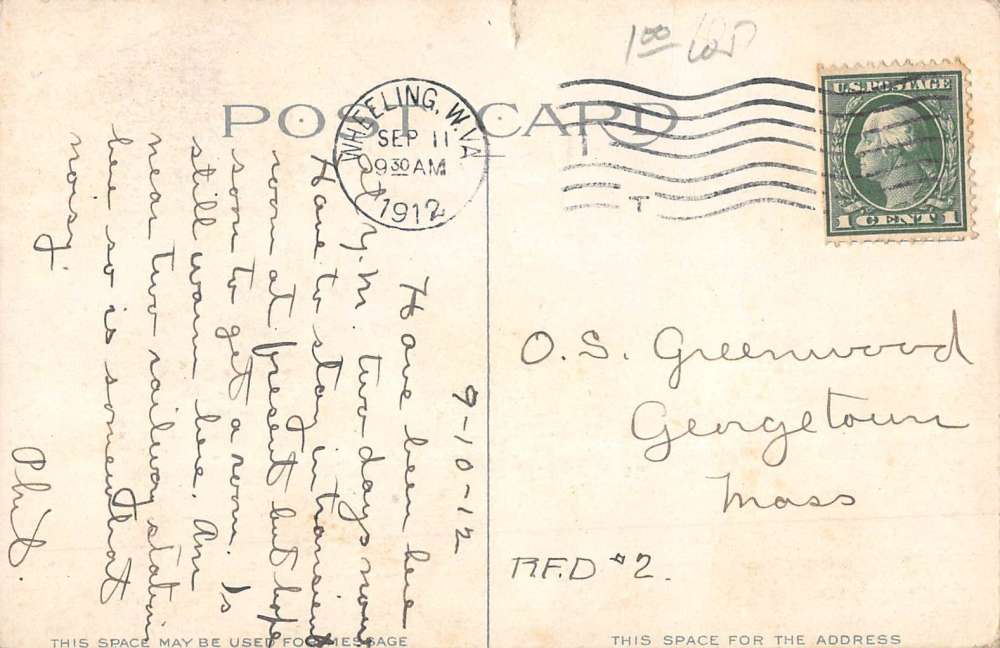 1.00
POST CARD
WHEELING, W.VA
SEP 11
9 30 AM
1912
T
U.S. POSTAGE
1 CENT 1
9-10-12
Have been here
at Y.M. two days now
Have to stay in transient
room at present but hope
soon to get a room. Is
still warm here. Am
near two railway stations
here so is somewhat
noisy.
Phil.
O. S. Greenwood
Georgetown
Mass
R.F.D #2.
THIS SPACE MAY BE USED FOR MESSAGE
THIS SPACE FOR THE ADDRESS